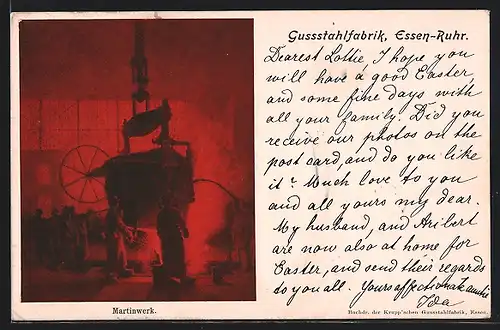 Gussstahlfabrik, Essen-Ruhr.
Dearest Lottie, I hope you
will have a good Easter,
and some fine days with
all your family. Did you
receive our photos on the
post card, and do you like
it? Much love to you
and all yours my dear.
My husband, and Aribert
are now also at home for
Easter, and send their regards
to you all. Yours affectionate auntie
Ida
Martinwerk.
Buchdr. der Krupp'schen Gussstahlfabrik, Essen.